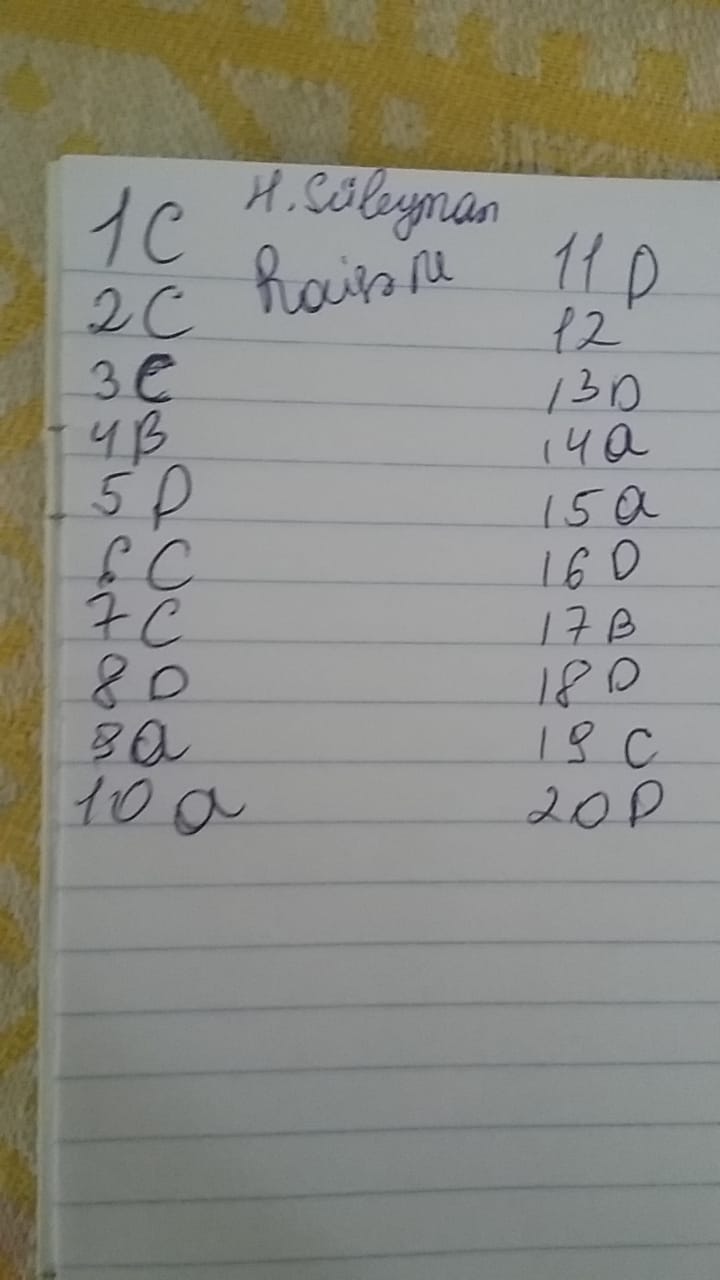 H. Süleyman
1 C
2 C
3 C
4 B
5 D
6 C
7 C
8 D
9 a
10 a
11 D
12
13 D
14 a
15 a
16 D
17 B
18 D
19 C
20 D